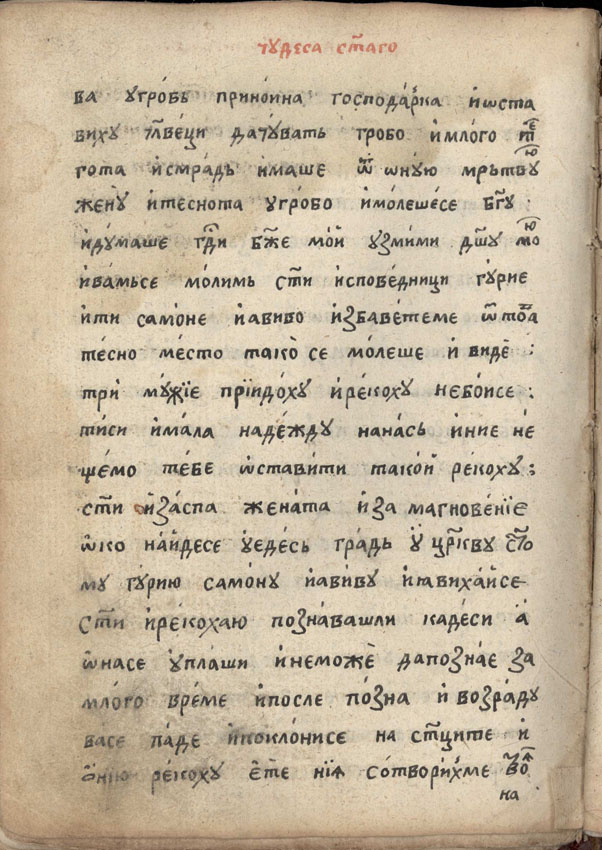 чꙋдеса ст҃аго
ва ꙋгро́бь прино́ина господа́рка и҆ѡста
виху да чꙋвать гро́бо и҆мло́го
гота и҆смра́дь и҆маше ѿ ѡнꙋ́ю мрьтвꙋ
же́нꙋ и҆теснота ꙋгро́бо и҆моле́шесе бг҃ꙋ
и҆дꙋ́маше гд҃и бж҃е мо́й ꙋзми́ми дш҃ꙋ мою
и҆ва́мьсе мо́лимь ст҃и и҆спове́дници гꙋ́рие
и҆ти само́не и҆авиво и҆ꙁбаве́теме ѿ тоѧ
те́сно ме́сто тако̀ се мо́леше и҆ виде :
три мꙋ́жїе прїидо́хꙋ и҆ре́кохꙋ небо́исе :
ти́си и҆ма́ла наде́ждꙋ нана́сь и҆ние не́
щемо те́бе ѡ҆ста́вити тако́й ре́кохꙋ :
ст҃и и҆ꙁа́спа жена́та и҆ꙁа магнове́нїе
ѡ҆ко на́йдесе ꙋ҆еде́сь гра́дь ꙋ҆ цр҃квꙋ ст҃о
мꙋ гꙋ́рию само́нꙋ и҆ави́вꙋ и҆ꙗвиха́йсе
ст҃и и҆ре́кохаю поꙁна́вашли каде́си а҆
ѡ҆на́се ꙋ҆пла́ши и҆немо́же дапоꙁна́е ꙁа
мло́го вре́ме и҆после по́ꙁна и҆ воꙁра́дꙋ
васе па́де и҆покло́нисе на ст҃ците и҆
ѻ҆нїю ре́кохꙋ е҆те нїѧ сотвори́хме
на